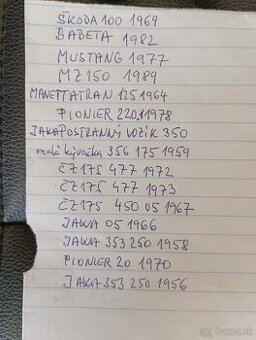 ŠKODA 100 1969
BABETA 1982
MUSTANG 1977
MZ 150 1989
MANETTATRAN 125 1964
PIONIER 220 1978
JAWAPOSTRANNÝ VOZÍK 350
malá kývačka 356 175 1959
ČZ 175 477 1972
ČZ 175 477 1973
ČZ 175 450 05 1967
JAWA 05 1966
JAWA 353 250 1958
PIONIER 20 1970
JAWA 353 250 1956
Bazos.sk